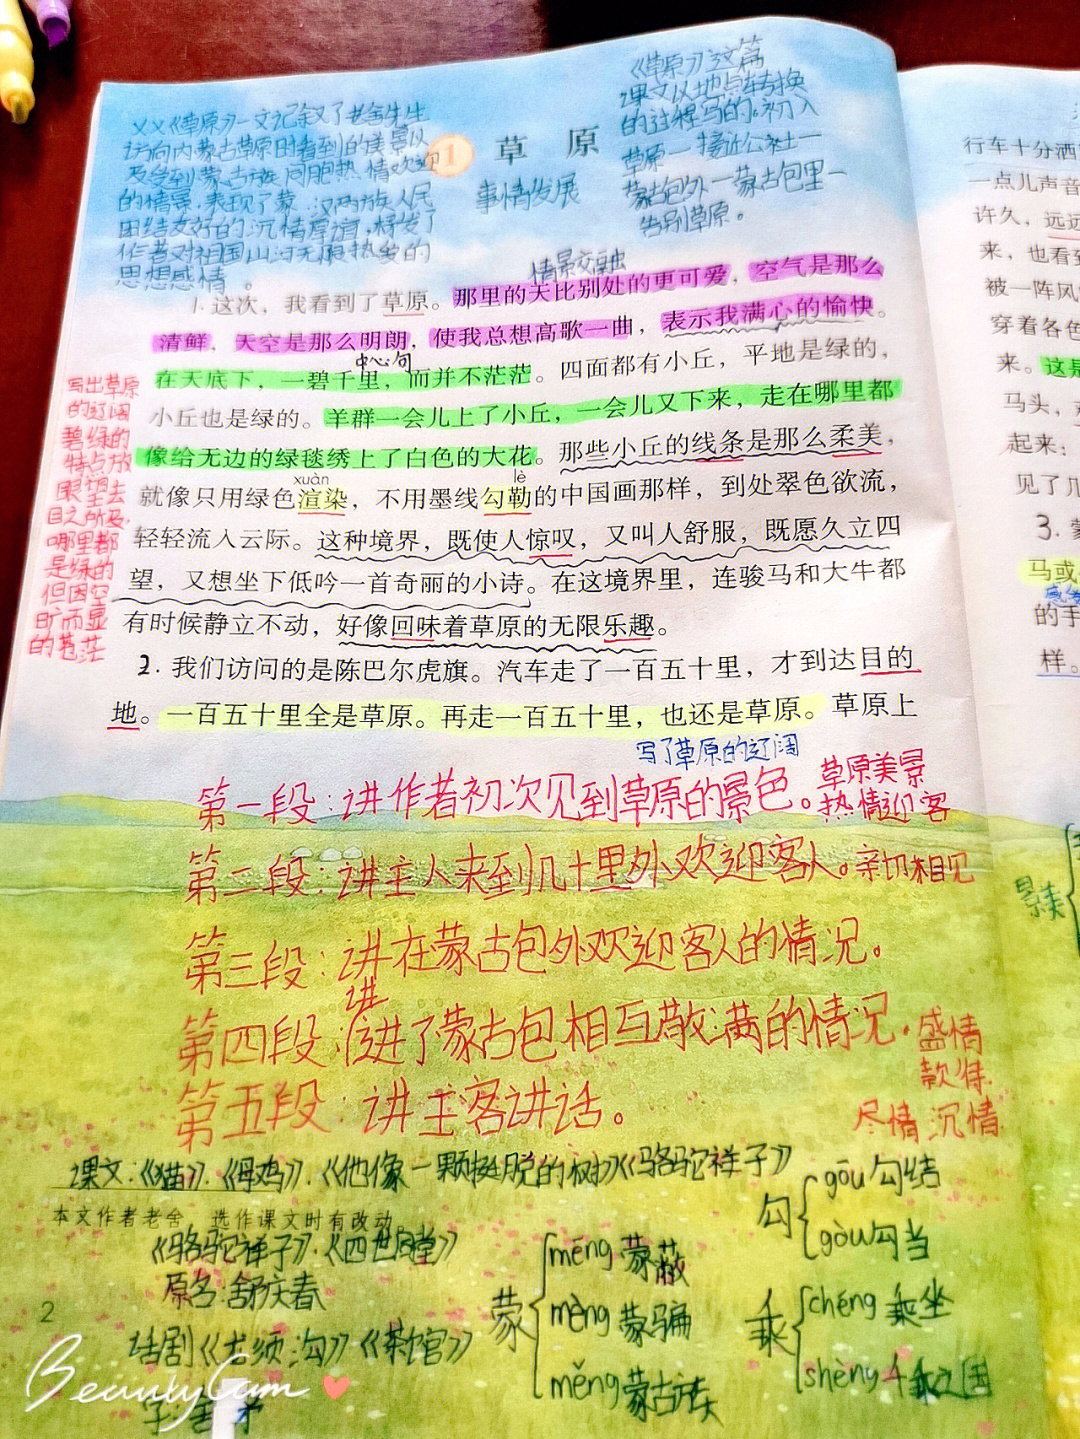 ××《草原》一文记叙了老舍先生
访问内蒙古草原时看到的美景以
及受到蒙古族同胞热情欢迎
的情景,表现了蒙、汉两族人民
团结友好的沉情厚谊,抒发了
作者对祖国山河无限热爱的
思想感情。
1 草原
事情发展
《草原》这篇
课文以地点转换
的过程写的。初入
草原一接近公社一
蒙古包外一蒙古包里一
告别草原。
情景交融
1.这次，我看到了草原。那里的天比别处的更可爱，空气是那么
清鲜，天空是那么明朗，使我总想高歌一曲，表示我满心的愉快。
中心句
在天底下，一碧千里，而并不茫茫。四面都有小丘，平地是绿的，
小丘也是绿的。羊群一会儿上了小丘，一会儿又下来，走在哪里都
像给无边的绿毯绣上了白色的大花。那些小丘的线条是那么柔美，
xuàn lè
就像只用绿色渲染，不用墨线勾勒的中国画那样，到处翠色欲流，
轻轻流入云际。这种境界，既使人惊叹，又叫人舒服，既愿久立四
望，又想坐下低吟一首奇丽的小诗。在这境界里，连骏马和大牛都
有时候静立不动，好像回味着草原的无限乐趣。
2.我们访问的是陈巴尔虎旗。汽车走了一百五十里，才到达目的
地。一百五十里全是草原。再走一百五十里，也还是草原。草原上
写出草原
的辽阔
碧绿的
特点放
眼望去
目之所及,
哪里都
是绿的
但因空
旷而显
的苍茫
写了草原的辽阔
第一段:讲作者初次见到草原的景色。
草原美景
热情迎客
第二段:讲主人来到几十里外欢迎客人。亲切相见
第三段:讲在蒙古包外欢迎客人的情况。
讲
第四段:进了蒙古包相互敬满的情况。盛情
款待
第五段:讲主客讲话。
尽情 沉情
课文:《猫》.《母鸡》.《他像一颗挺脱的树》《骆驼祥子》
本文作者老舍，选作课文时有改动。
《骆驼祥子》.《四世同堂》
原名:舒庆春
话剧《龙须沟》《茶馆》
字:舍予
蒙
mēng 蒙蔽
mēng 蒙骗
měng 蒙古族
勾
gōu 勾结
gòu 勾当
乘
chéng 乘坐
shèng 千乘之国
2
BeautyCam
行车十分洒
一点儿声音
许久，远远
来，也看到
被一阵风
穿着各色
来。这是
马头，
起来：
见了几
3.蒙
马或
的手
样。
景美